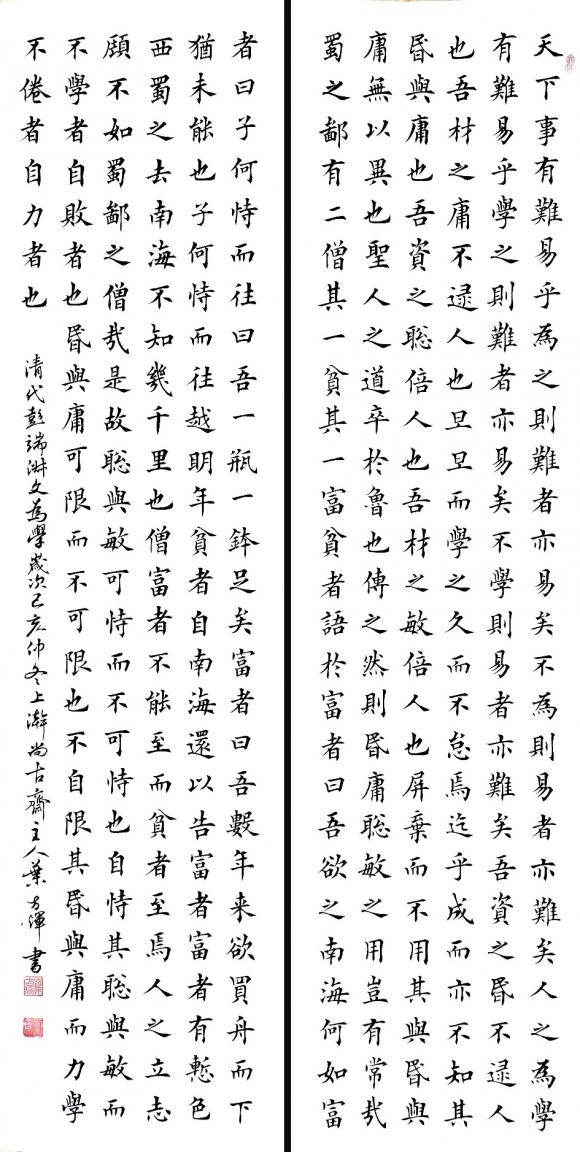 天下事有難易乎為之則難者亦易矣不為則易者亦難矣人之為學
有難易乎學之則難者亦易矣不學則易者亦難矣吾資之昬不逮人
也吾材之庸不逮人也旦旦而學之久而不怠焉迄乎成而亦不知其
昬與庸也吾資之聡倍人也吾材之敏倍人也屏棄而不用其與昬與
庸無以異也聖人之道卒於魯也傳之然則昬庸聡敏之用豈有常哉
蜀之鄙有二僧其一貧其一富貧者語於富者曰吾欲之南海何如富
者曰子何恃而往曰吾一瓶一鉢足矣富者曰吾數年来欲買舟而下
猶未能也子何恃而往越明年貧者自南海還以告富者富者有慙色
西蜀之去南海不知幾千里也僧富者不能至而貧者至焉人之立志
顧不如蜀鄙之僧哉是故聡與敏可恃而不可恃也自恃其聡與敏而
不學者自敗者也昬與庸可限而不可限也不自限其昬與庸而力學
不倦者自力者也
清代彭端淑文為學歲次己亥仲冬上澣尚古齋主人葉方書